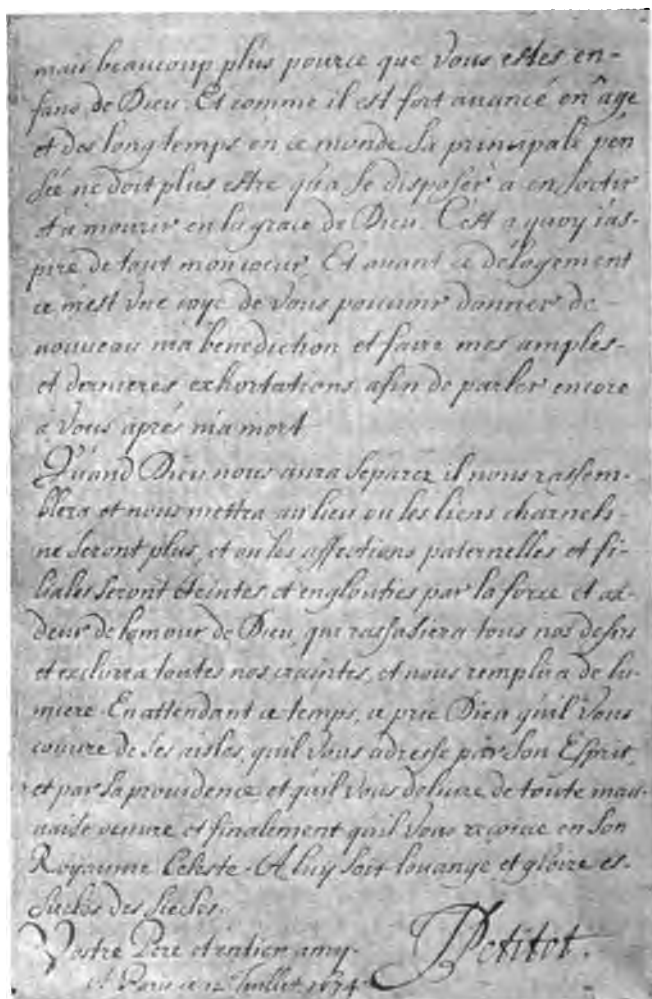 mais beaucoup plus pource que Vous estes en-
fans de Dieu. Et comme il est fort auancé en âge
et des long temps en ce monde sa principale pen
sée ne doit plus estre qu'a se disposer a en sortir
et a mourir en la grace de Dieu. C'est a quoy i'as-
pire de tout mon coeur. Et auant ce délogement
ce m'est Vne ioye de Vous pouuoir donner de
nouueau ma benediction et faire mes amples
et dernieres exhortations afin de parler encore
a Vous aprés ma mort
Quand Dieu nous aura séparéz il nous rassem-
blera et nous mettra au lieu ou les liens charnels
ne seront plus, et ou les affections paternelles et fi-
liales seront éteintes et englouties par la force et ar-
deur de l'amour de Dieu, qui rassasiera tous nos desirs
et exclurra toutes nos craintes, et nous remplira de lu-
miere. En attendant ce temps, ie prie Dieu qu'il Vous
couure de ses aisles, quil Vous adresse par son Esprit,
et par sa prouidence et qu'il Vous deliure de toute mau-
uaise et finalement quil Vous reçoiue en son
Royaume Celeste. A luy soit louange et gloire es-
siecles des siecles.
Vostre Pere et entier amy.
A Paris ce 12 Juillet. 1674
J Petitot.